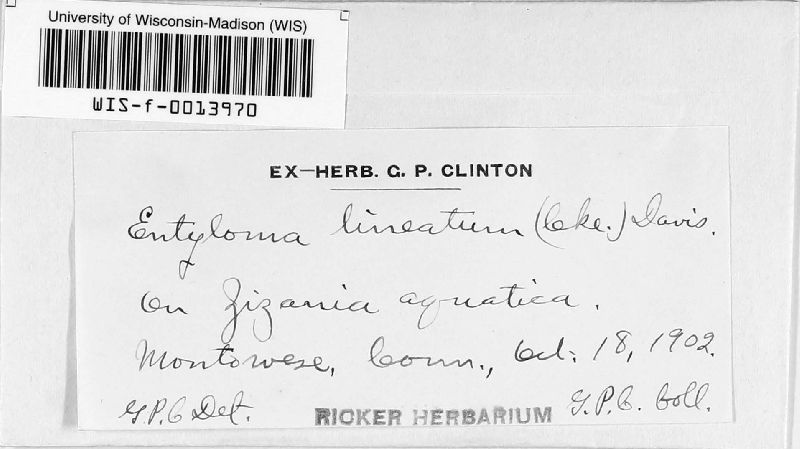 University of Wisconsin-Madison (WIS)
WIS-f-0013970
EX-HERB. G. P. CLINTON
Entyloma lineatum (Cke.) Davis.
On Zizania aquatica.
Montowese, Conn., Oct. 18, 1902.
G.P.C Det.
RICKER HERBARIUM
G.P.C. Coll.